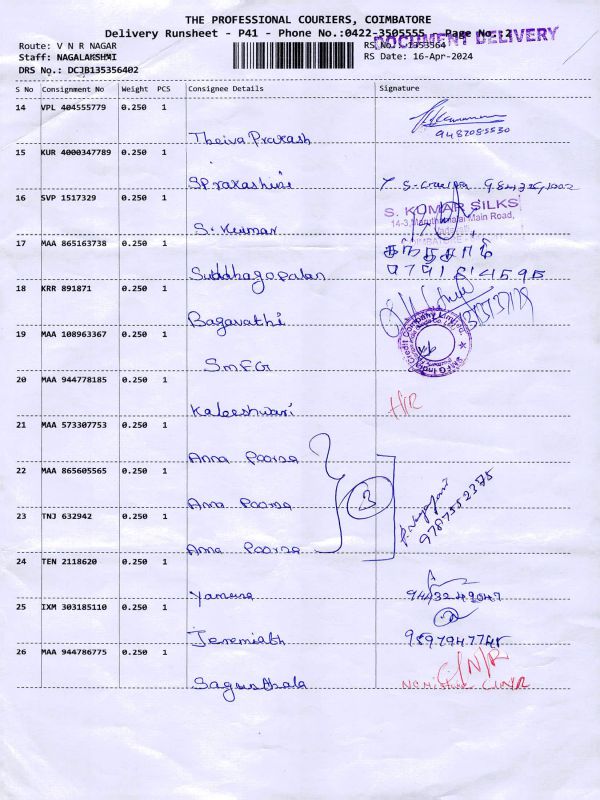 THE PROFESSIONAL COURIERS, COIMBATORE
Delivery Runsheet - P41 - Phone No.:0422-3505555 - Page No.:2
DOCUMENT DELIVERY
Route: V N R NAGAR
RS No.: 1353564
Staff: NAGALAKSHMI
RS Date: 16-Apr-2024
DRS No.: DCJB135356402
S No Consignment No Weight PCS Consignee Details Signature
14 VPL 404555779 0.250 1
Theiva Prakash
9487085530
15 KUR 4000347789 0.250 1
S Prakashini
16 SVP 1517329 0.250 1
S. Kumar
S. KUMAR SILKS
Main Road,
17 MAA 865163738 0.250 1
Suddhagopalan
18 KRR 891871 0.250 1
Bagavathi
19 MAA 108963367 0.250 1
SMFG
SMFG India Credit Company Limited
20 MAA 944778185 0.250 1
Kaleeshwari
21 MAA 573307753 0.250 1
Anna Poorna
22 MAA 865605565 0.250 1
Anna Poorna
3
23 TNJ 632942 0.250 1
Anna Poorna
9787552375
24 TEN 2118620 0.250 1
Yamuna
25 IXM 303185110 0.250 1
Jeremiah
26 MAA 944786775 0.250 1
C/N/R